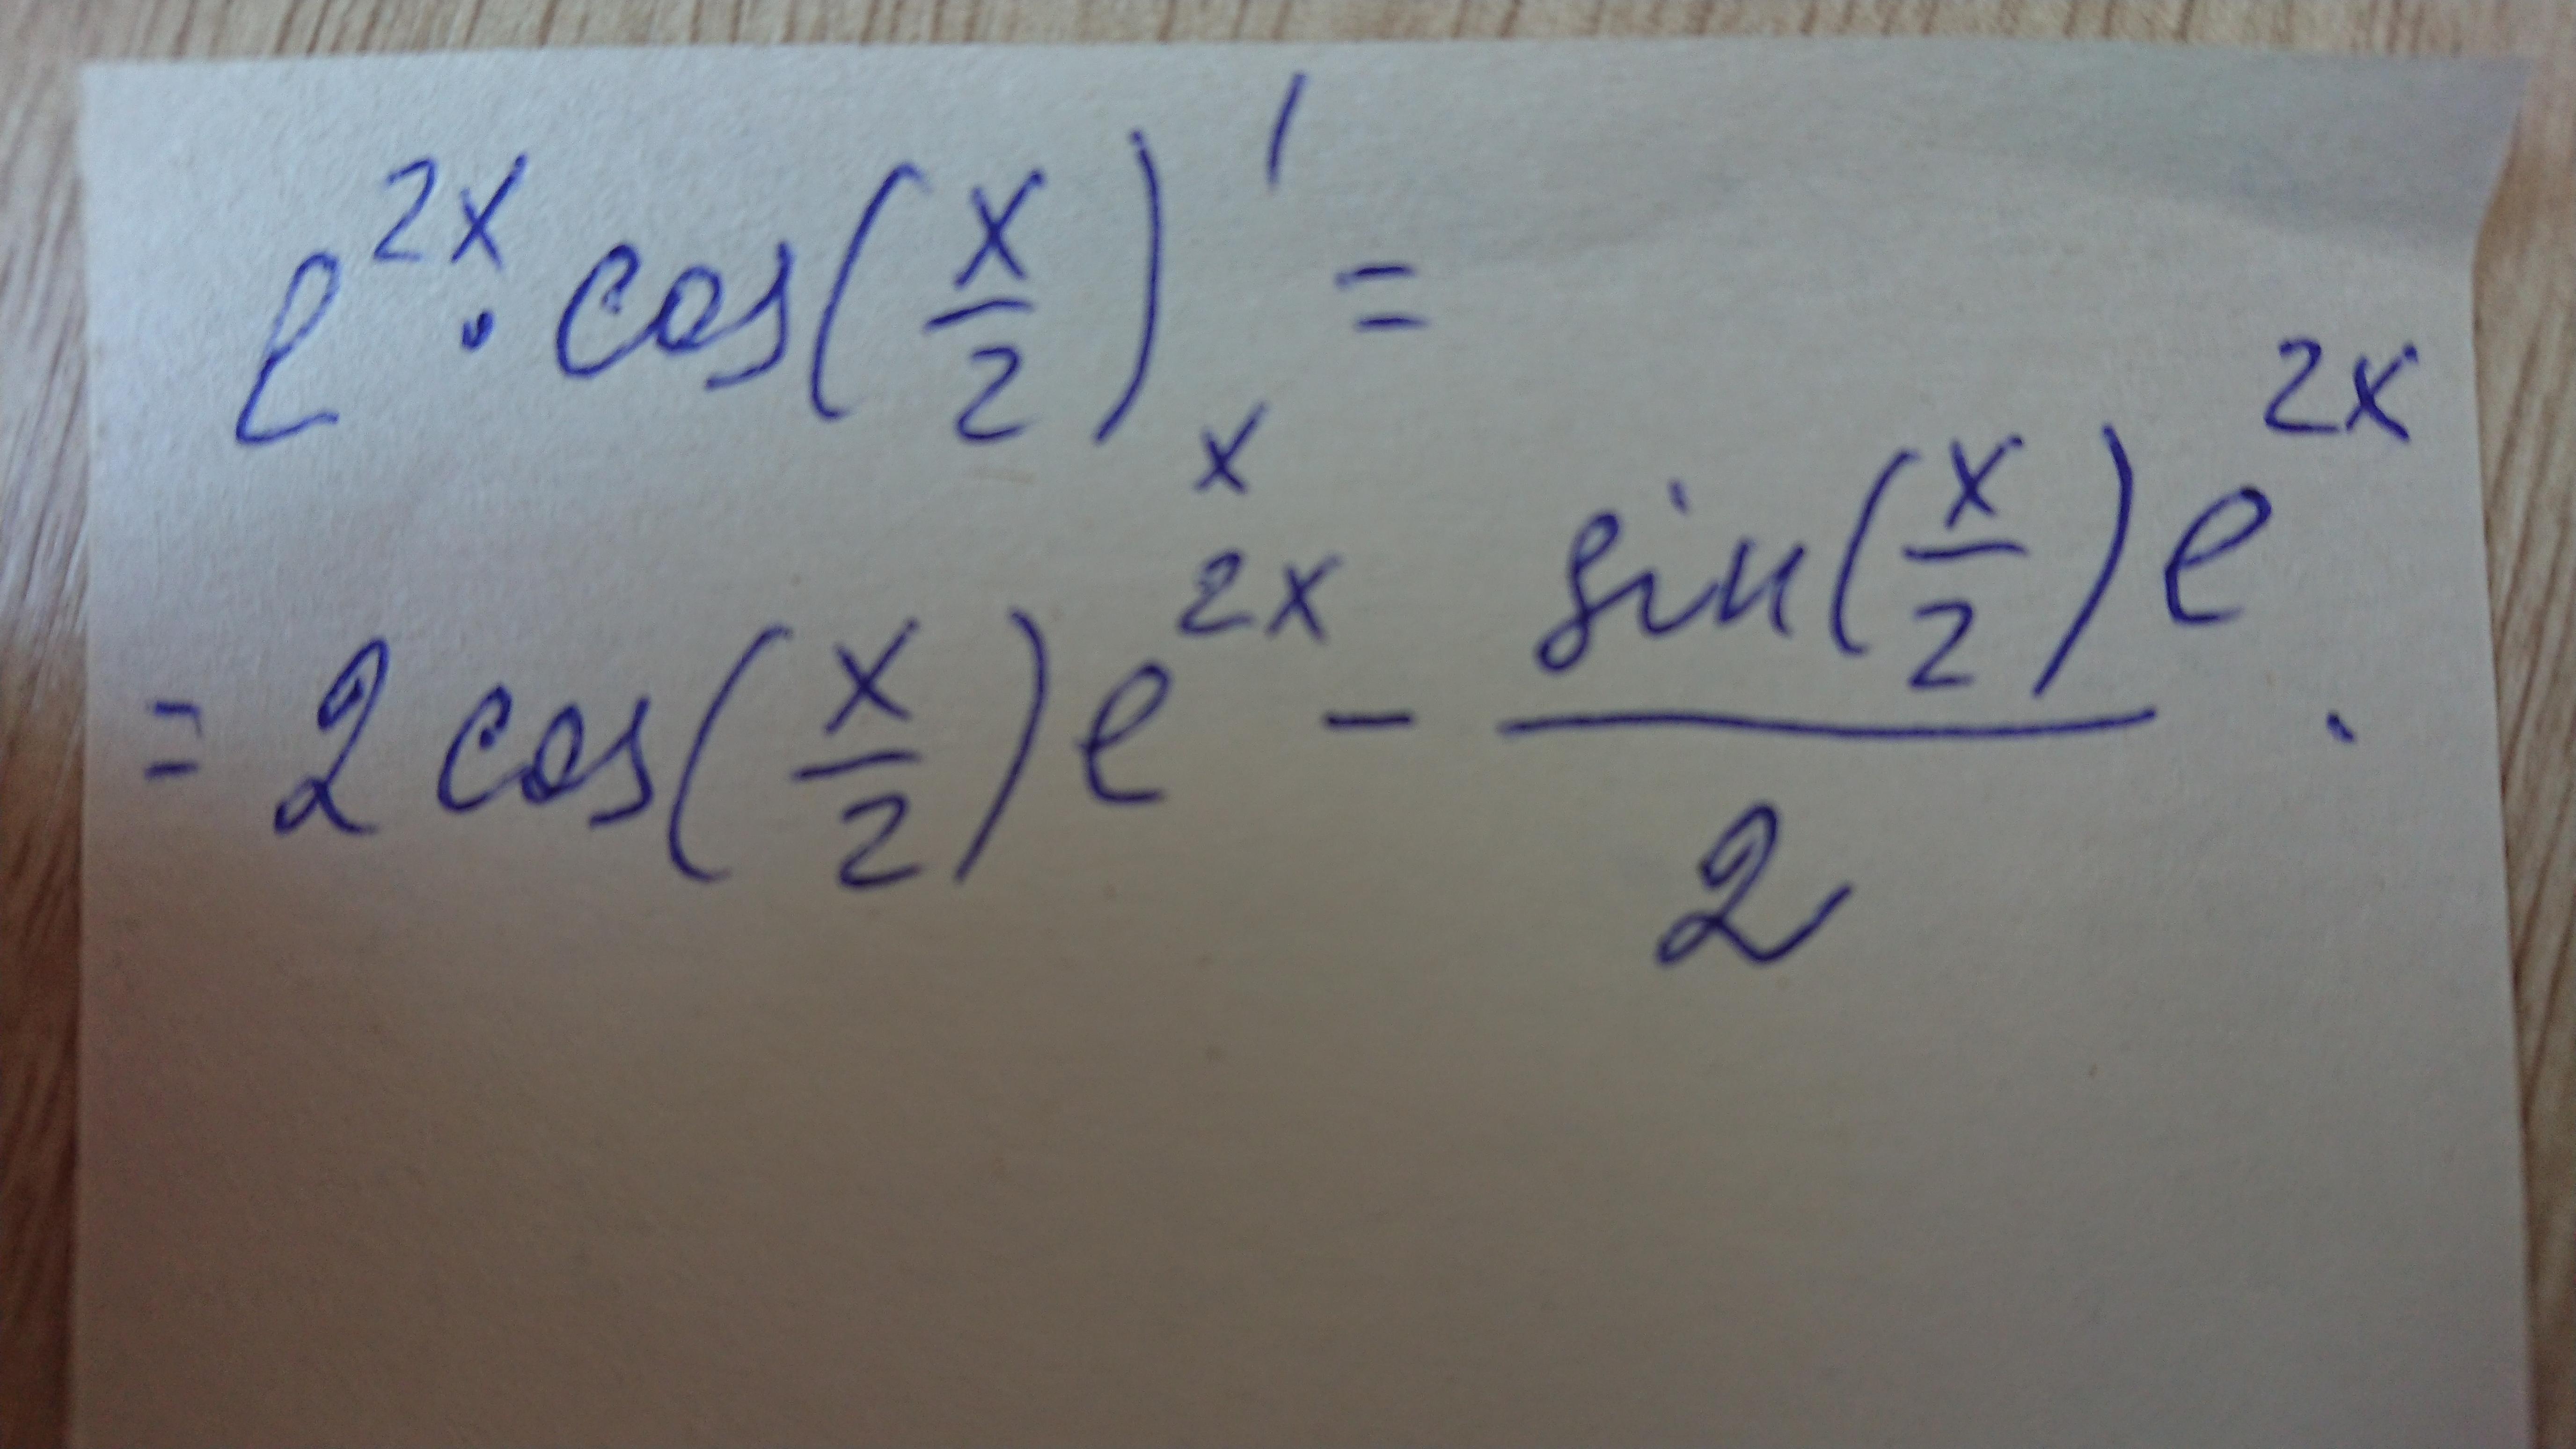 e^{2x} · cos(x/2)'_x =
= 2 cos(x/2) e^{2x} - \frac{sin(x/2) e^{2x}}{2} .